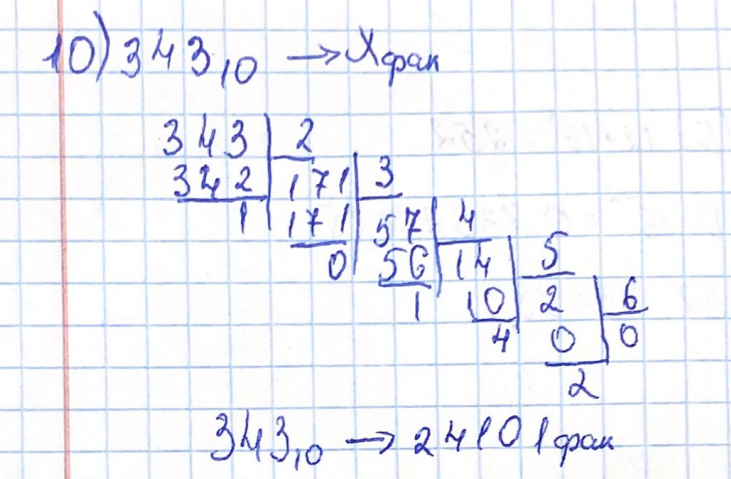 10) 343₁₀ → Xфак
343 | 2
342 | 171 | 3
1 | 171 | 57 | 4
0 | 56 | 14 | 5
1 | 10 | 2 | 6
4 | 0 | 0
2
343₁₀ → 24101фак